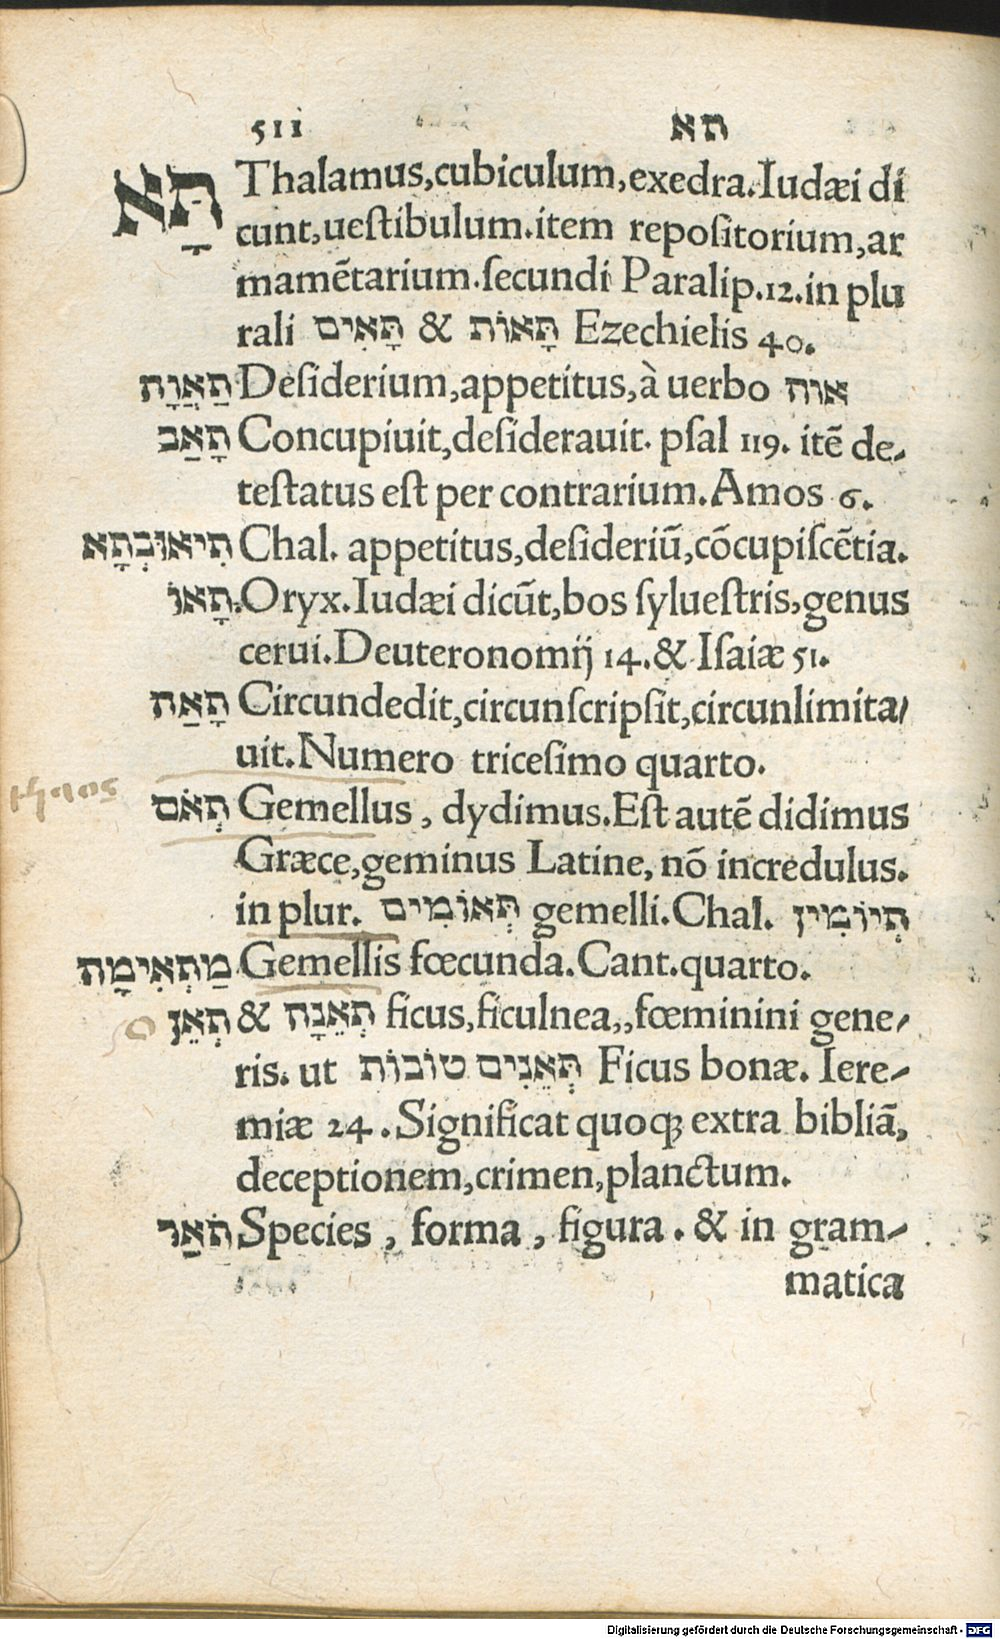 511 תא
תָּא Thalamus,cubiculum,exedra.Iudæi di
cunt,ueſtibulum.item repoſitorium,ar
mamētarium.ſecundi Paralip.12.in plu
rali תָּאִים & תָּאוֹת Ezechielis 40.
תַּאֲוָה Deſiderium,appetitus,à uerbo אוה
תָּאַב Concupiuit,deſiderauit. pſal 119. itē de-
teſtatus eſt per contrarium.Amos 6.
תִיאוּבְתָּא Chal. appetitus,deſideriū,cōcupiſcētia.
תָּאוֹ. Oryx.Iudæi dicūt,bos ſylueſtris,genus
cerui.Deuteronomij 14.& Iſaiæ 51.
תָּאַה Circundedit,circunſcripſit,circunlimita/
uit.Numero triceſimo quarto.
תְּאֹם Gemellus, dydimus.Eſt autē didimus
Græce,geminus Latine, nō incredulus.
in plur. תְּאוֹמִים gemelli.Chal. תְּיוֹמִין
מַתְאִימָה Gemellis fœcunda.Cant.quarto.
תְּאֵן & תְּאֵנָה ficus,ficulnea,,fœminini gene/
ris. ut תְּאֵנִים טוֹבוֹת Ficus bonæ. Iere-
miæ 24. Significat quoqꝫ extra bibliā,
deceptionem,crimen,planctum.
תֹּאַר Species, forma, figura. & in gram-
matica
Digitalisierung gefördert durch die Deutsche Forschungsgemeinschaft - DFG